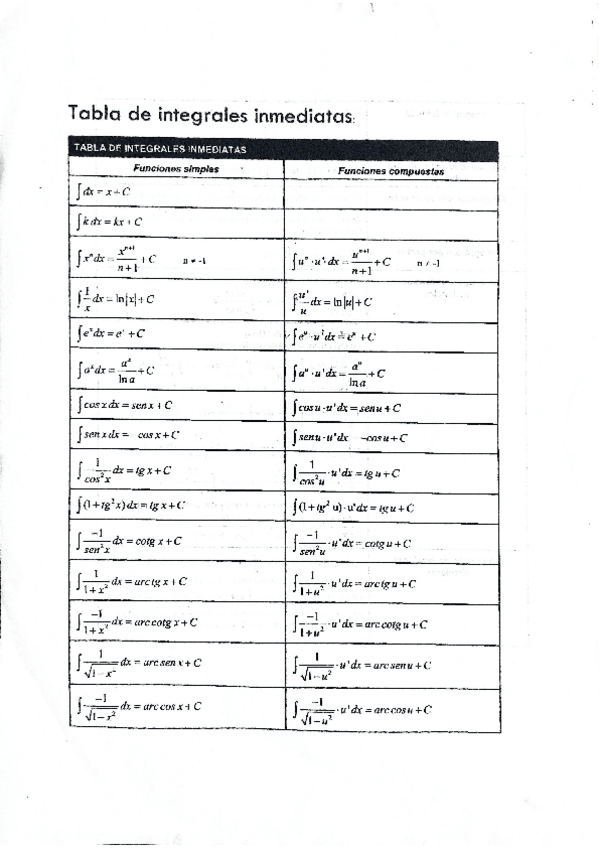 Tabla de integrales inmediatas:
TABLA DE INTEGRALES INMEDIATAS
Funciones simples Funciones compuestas
∫dx = x + C
∫k dx = kx + C
∫xⁿdx = xⁿ⁺¹/(n+1) + C n ≠ -1 ∫uⁿ·u'dx = uⁿ⁺¹/(n+1) + C n ≠ -1
∫1/x dx = ln|x| + C ∫u'/u dx = ln|u| + C
∫eˣdx = eˣ + C ∫eᵘ·u'dx = eᵘ + C
∫aˣdx = aˣ/ln a + C ∫aᵘ·u'dx = aᵘ/ln a + C
∫cos x dx = sen x + C ∫cos u·u'dx = sen u + C
∫sen x dx = cos x + C ∫sen u·u'dx –cos u + C
∫1/cos²x dx = tg x + C ∫1/cos²u ·u'dx = tg u + C
∫(1+tg²x)dx = tg x + C ∫(1+tg² u)·u'dx = tg u + C
∫-1/sen²x dx = cotg x + C ∫-1/sen²u ·u'dx = cotg u + C
∫1/(1+x²) dx = arc tg x + C ∫1/(1+u²) ·u'dx = arc tg u + C
∫-1/(1+x²) dx = arc cotg x + C ∫-1/(1+u²) ·u'dx = arc cotg u + C
∫1/√(1-x²) dx = arc sen x + C ∫1/√(1-u²) ·u'dx = arc sen u + C
∫-1/√(1-x²) dx = arc cos x + C ∫-1/√(1-u²) ·u'dx = arc cos u + C